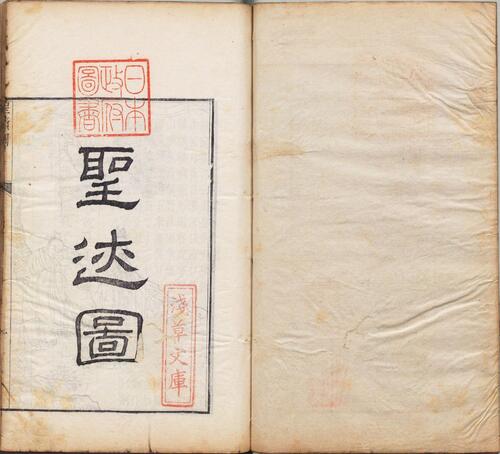 日本
政府
圖書
聖迹圖
淺草文庫